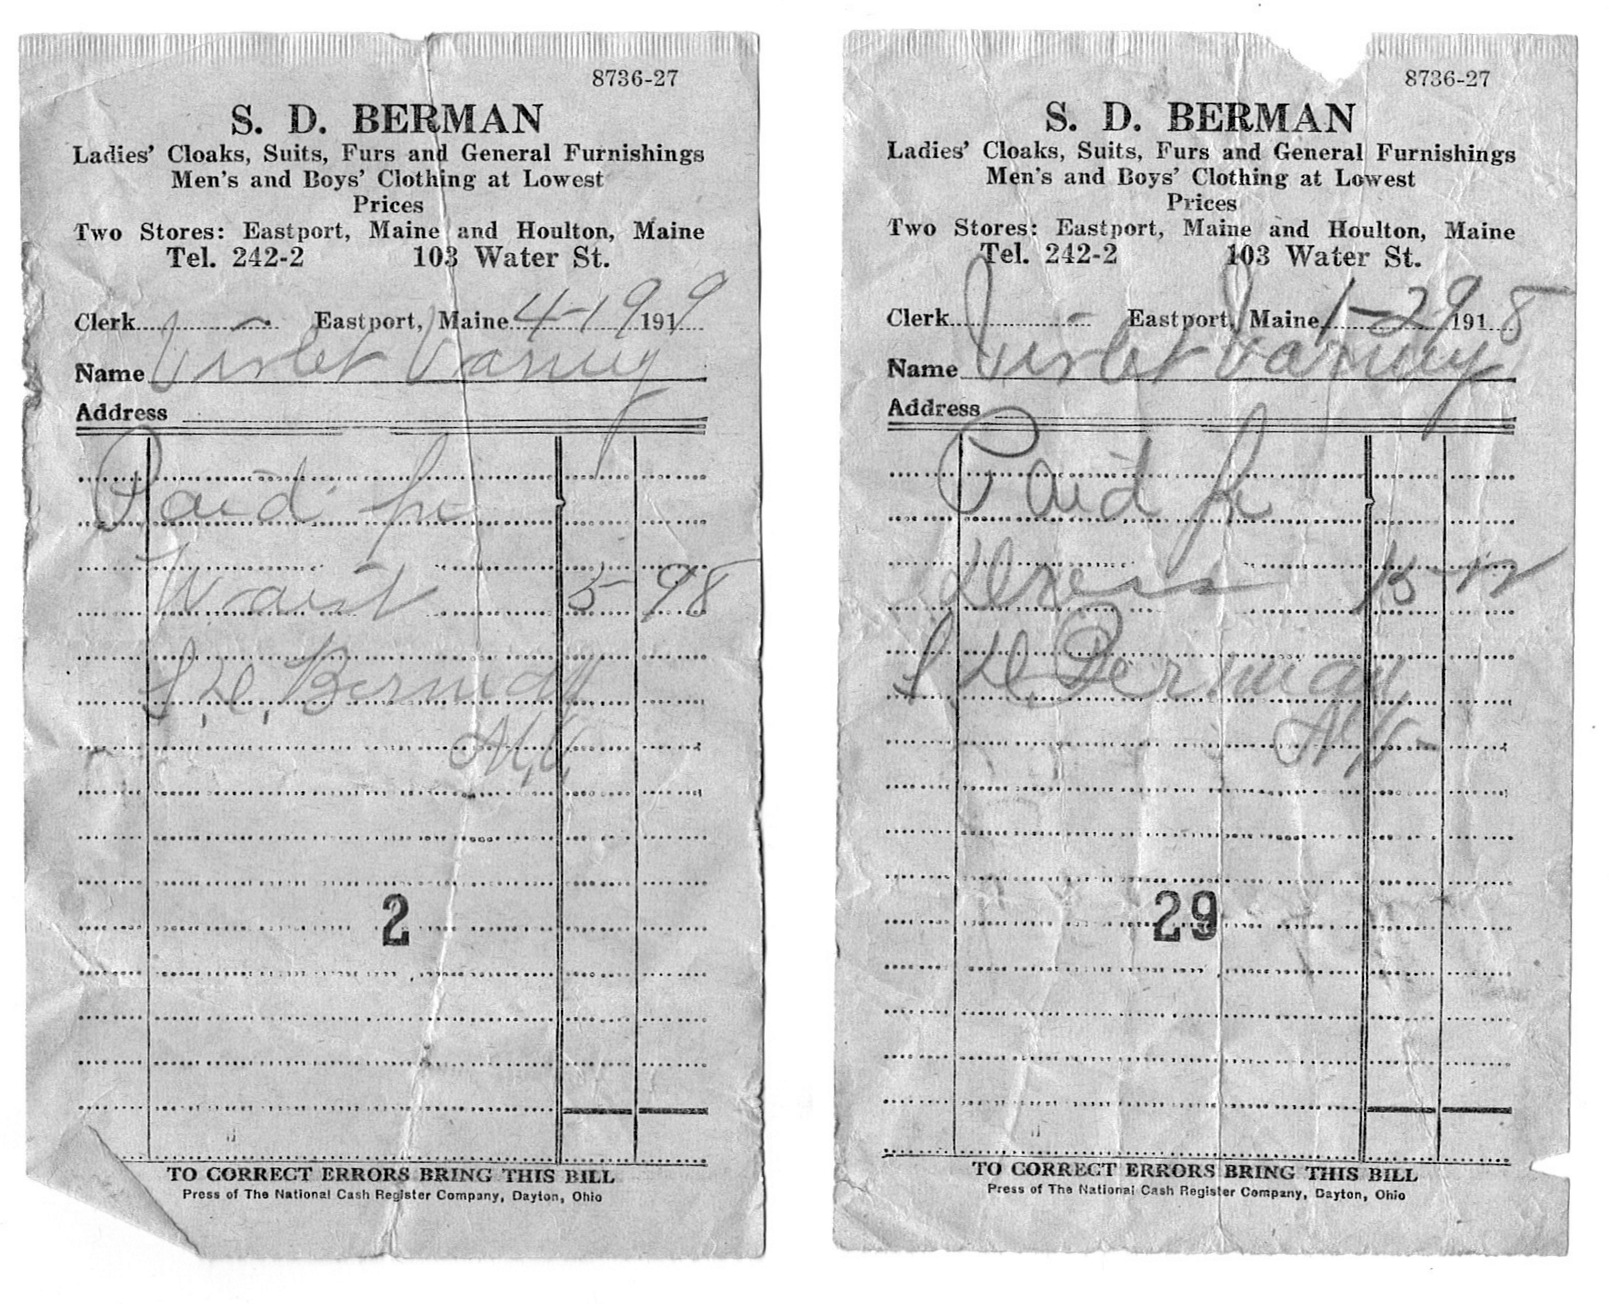 8736-27
S. D. BERMAN
Ladies' Cloaks, Suits, Furs and General Furnishings
Men's and Boys' Clothing at Lowest
Prices
Two Stores: Eastport, Maine and Houlton, Maine
Tel. 242-2 103 Water St.
Clerk Eastport, Maine 4-19 1919
Name Violet Varney
Address
Paid for
Waist 5-98
S. D. Berman
2
TO CORRECT ERRORS BRING THIS BILL
Press of The National Cash Register Company, Dayton, Ohio
8736-27
S. D. BERMAN
Ladies' Cloaks, Suits, Furs and General Furnishings
Men's and Boys' Clothing at Lowest
Prices
Two Stores: Eastport, Maine and Houlton, Maine
Tel. 242-2 103 Water St.
Clerk Eastport, Maine 1-29 1918
Name Violet Varney
Address
Paid for
dress 15
S D. Berman
29
TO CORRECT ERRORS BRING THIS BILL
Press of The National Cash Register Company, Dayton, Ohio